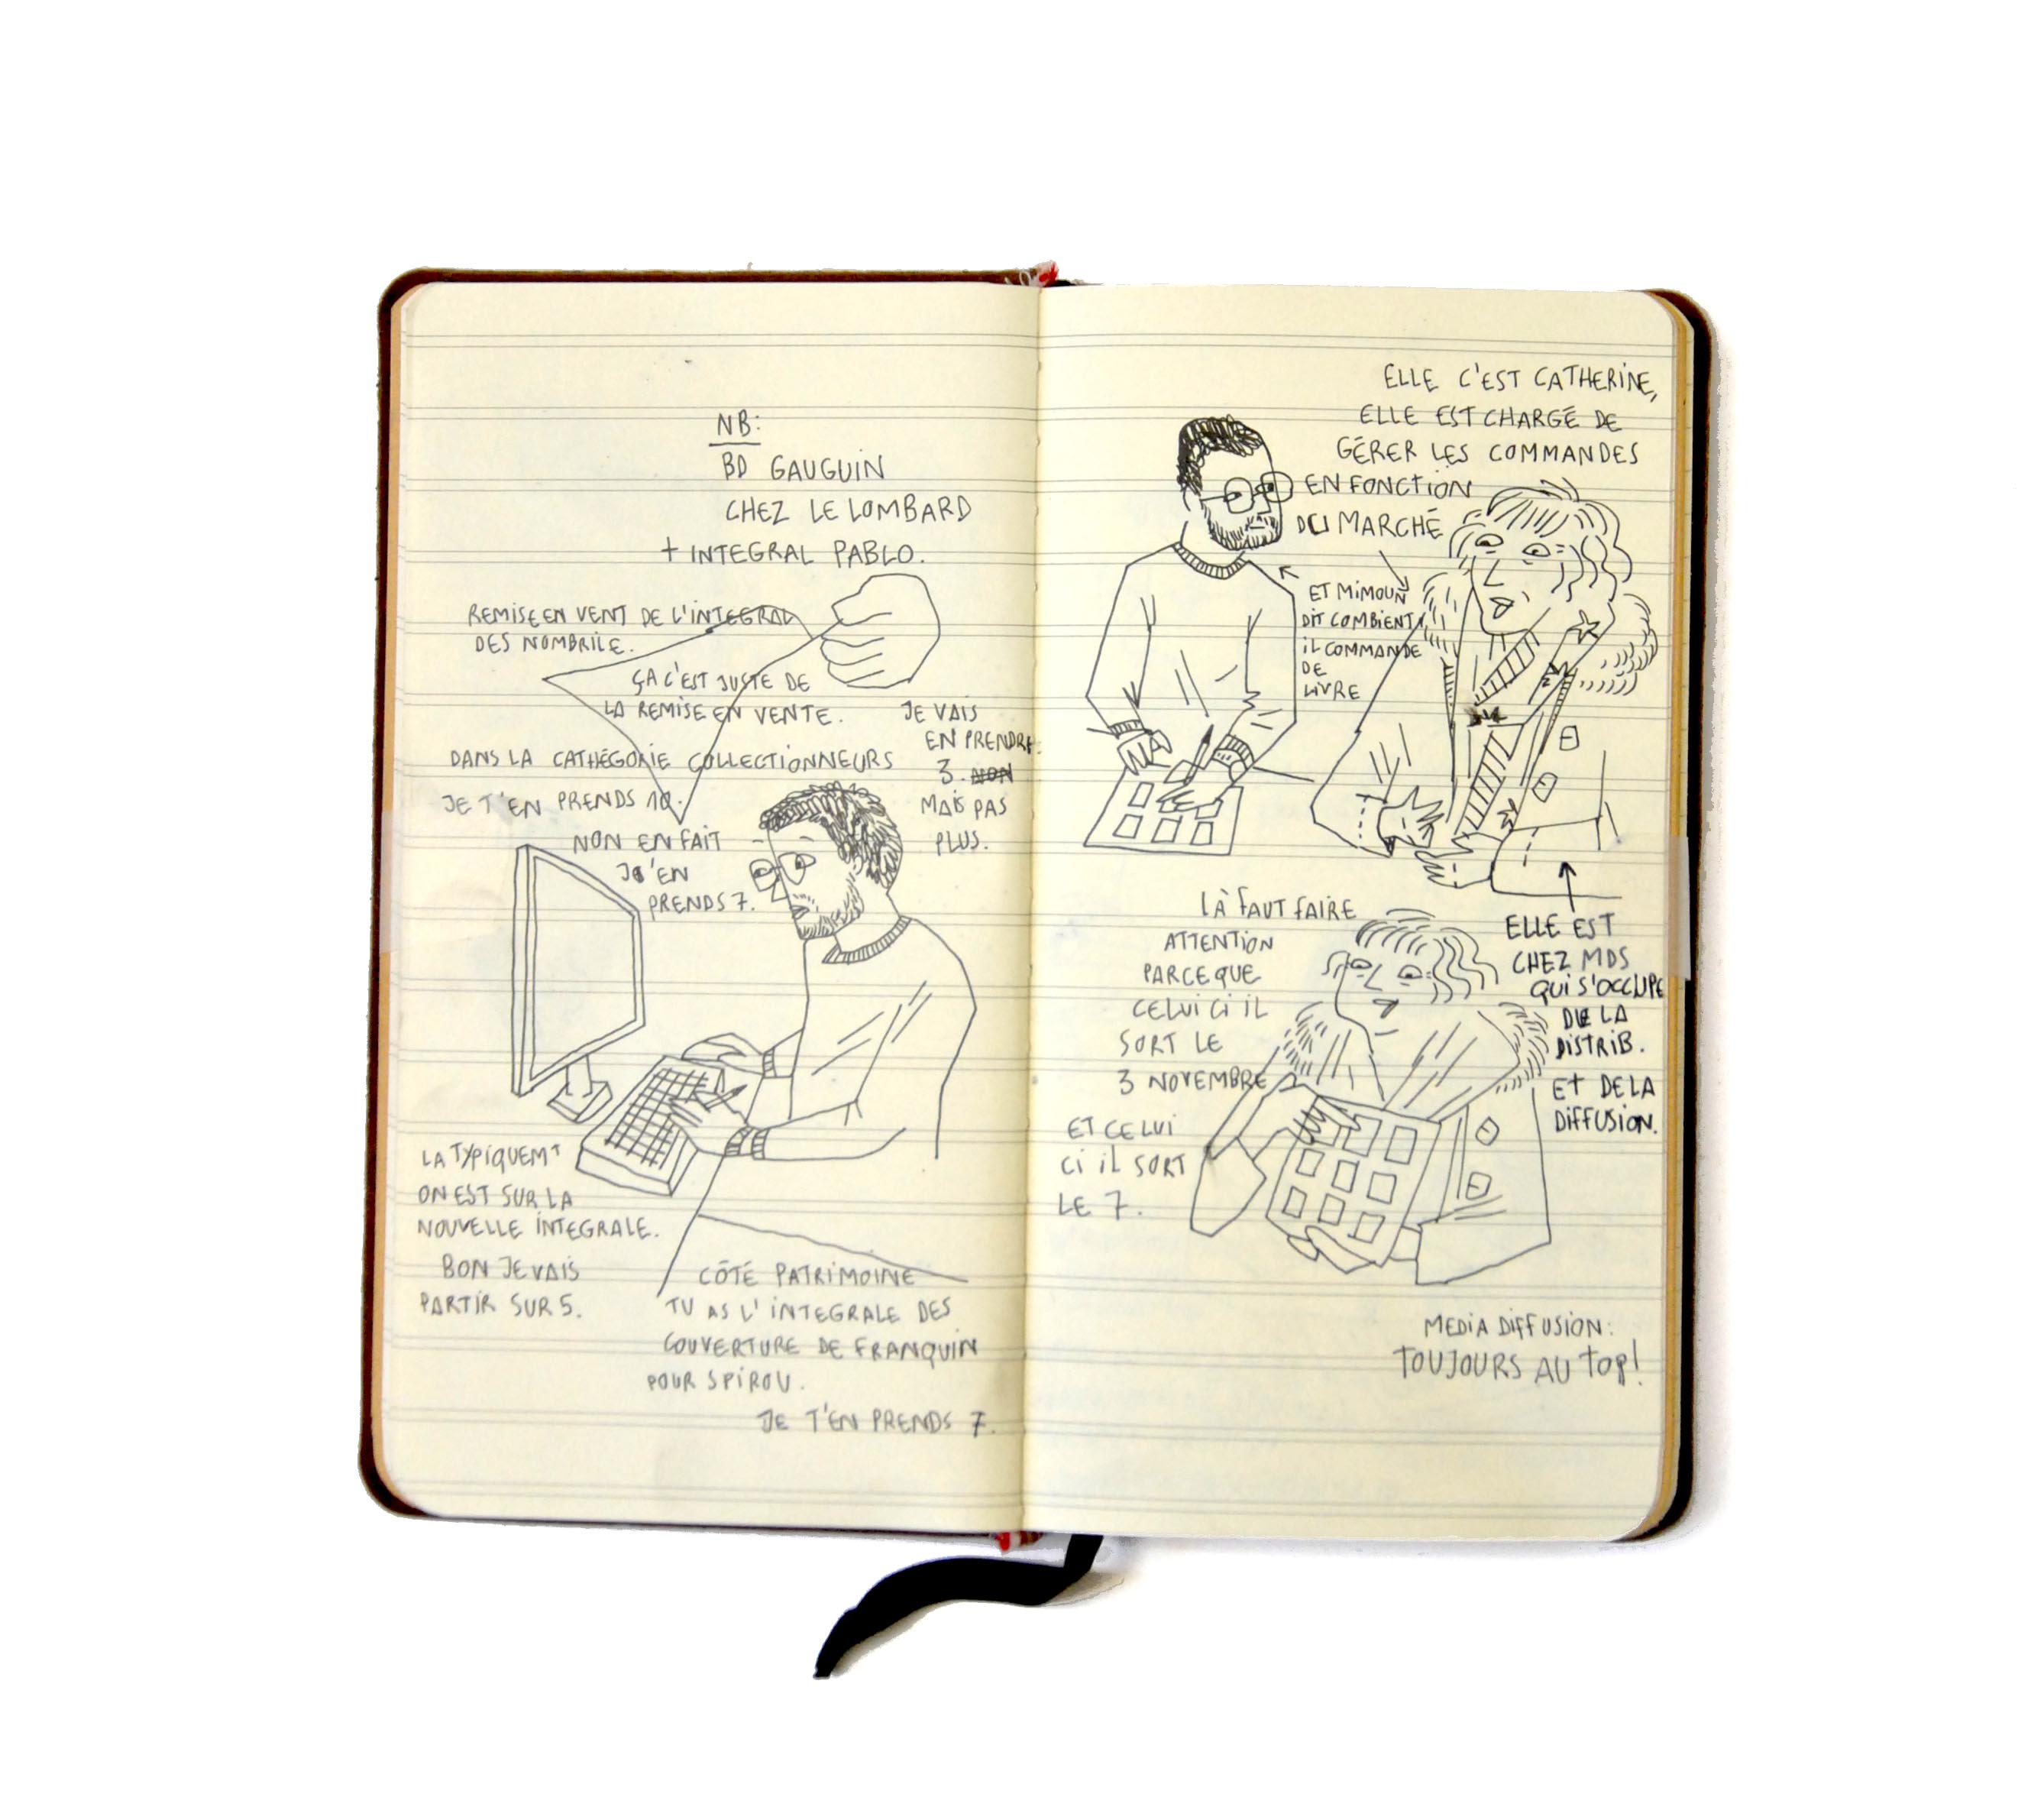 NB:
BD GAUGUIN
CHEZ LE LOMBARD
+ INTEGRAL PABLO.
REMISE EN VENT DE L'INTEGRAL
DES NOMBRILE.
ÇA C'EST JUSTE DE
LA REMISE EN VENTE.
JE VAIS
EN PRENDRE
3. NON
MAIS PAS
PLUS.
DANS LA CATHÉGORIE COLLECTIONNEURS
JE T'EN PRENDS 10.
NON EN FAIT
J'EN
PRENDS 7.
LA TYPIQUEMT
ON EST SUR LA
NOUVELLE INTEGRALE.
BON JE VAIS
PARTIR SUR 5.
CÔTÉ PATRIMOINE
TU AS L'INTEGRALE DES
COUVERTURE DE FRANQUIN
POUR SPIROU.
JE T'EN PRENDS 7.
ELLE C'EST CATHERINE,
ELLE EST CHARGÉ DE
GÉRER LES COMMANDES
EN FONCTION
DU MARCHÉ
ET MIMOUN
DIT COMBIENT
IL COMMANDE
DE
LIVRE
LÀ FAUT FAIRE
ATTENTION
PARCE QUE
CELUI CI IL
SORT LE
3 NOVEMBRE
ET CELUI
CI IL SORT
LE 7.
ELLE EST
CHEZ MDS
QUI S'OCCUPE
DE LA
DISTRIB.
ET DE LA
DIFFUSION.
MEDIA DIFFUSION:
TOUJOURS AU TOP!